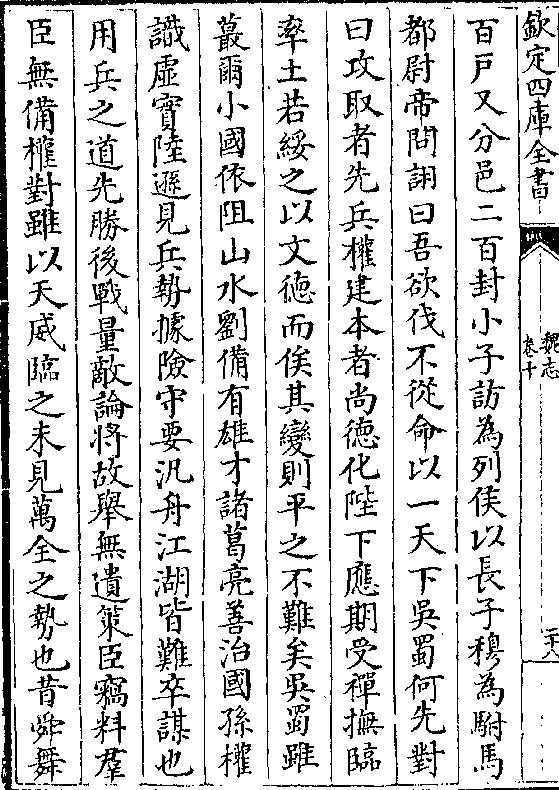 欽定四庫全書
魏志
卷十
二八
百戶又分邑二百封小子訪為列侯以長子穆為駙馬
都尉帝問詡曰吾欲伐不從命以一天下吳蜀何先對
曰攻取者先兵權建本者尚德化陛下應期受禪撫臨
率土若綏之以文德而俟其變則平之不難矣吳蜀雖
蕞爾小國依阻山水劉備有雄才諸葛亮善治國孫權
識虛實陸遜見兵勢據險守要汎舟江湖皆難卒謀也
用兵之道先勝後戰量敵論將故舉無遺策臣竊料羣
臣無備權對雖以天威臨之未見萬全之勢也昔舜舞